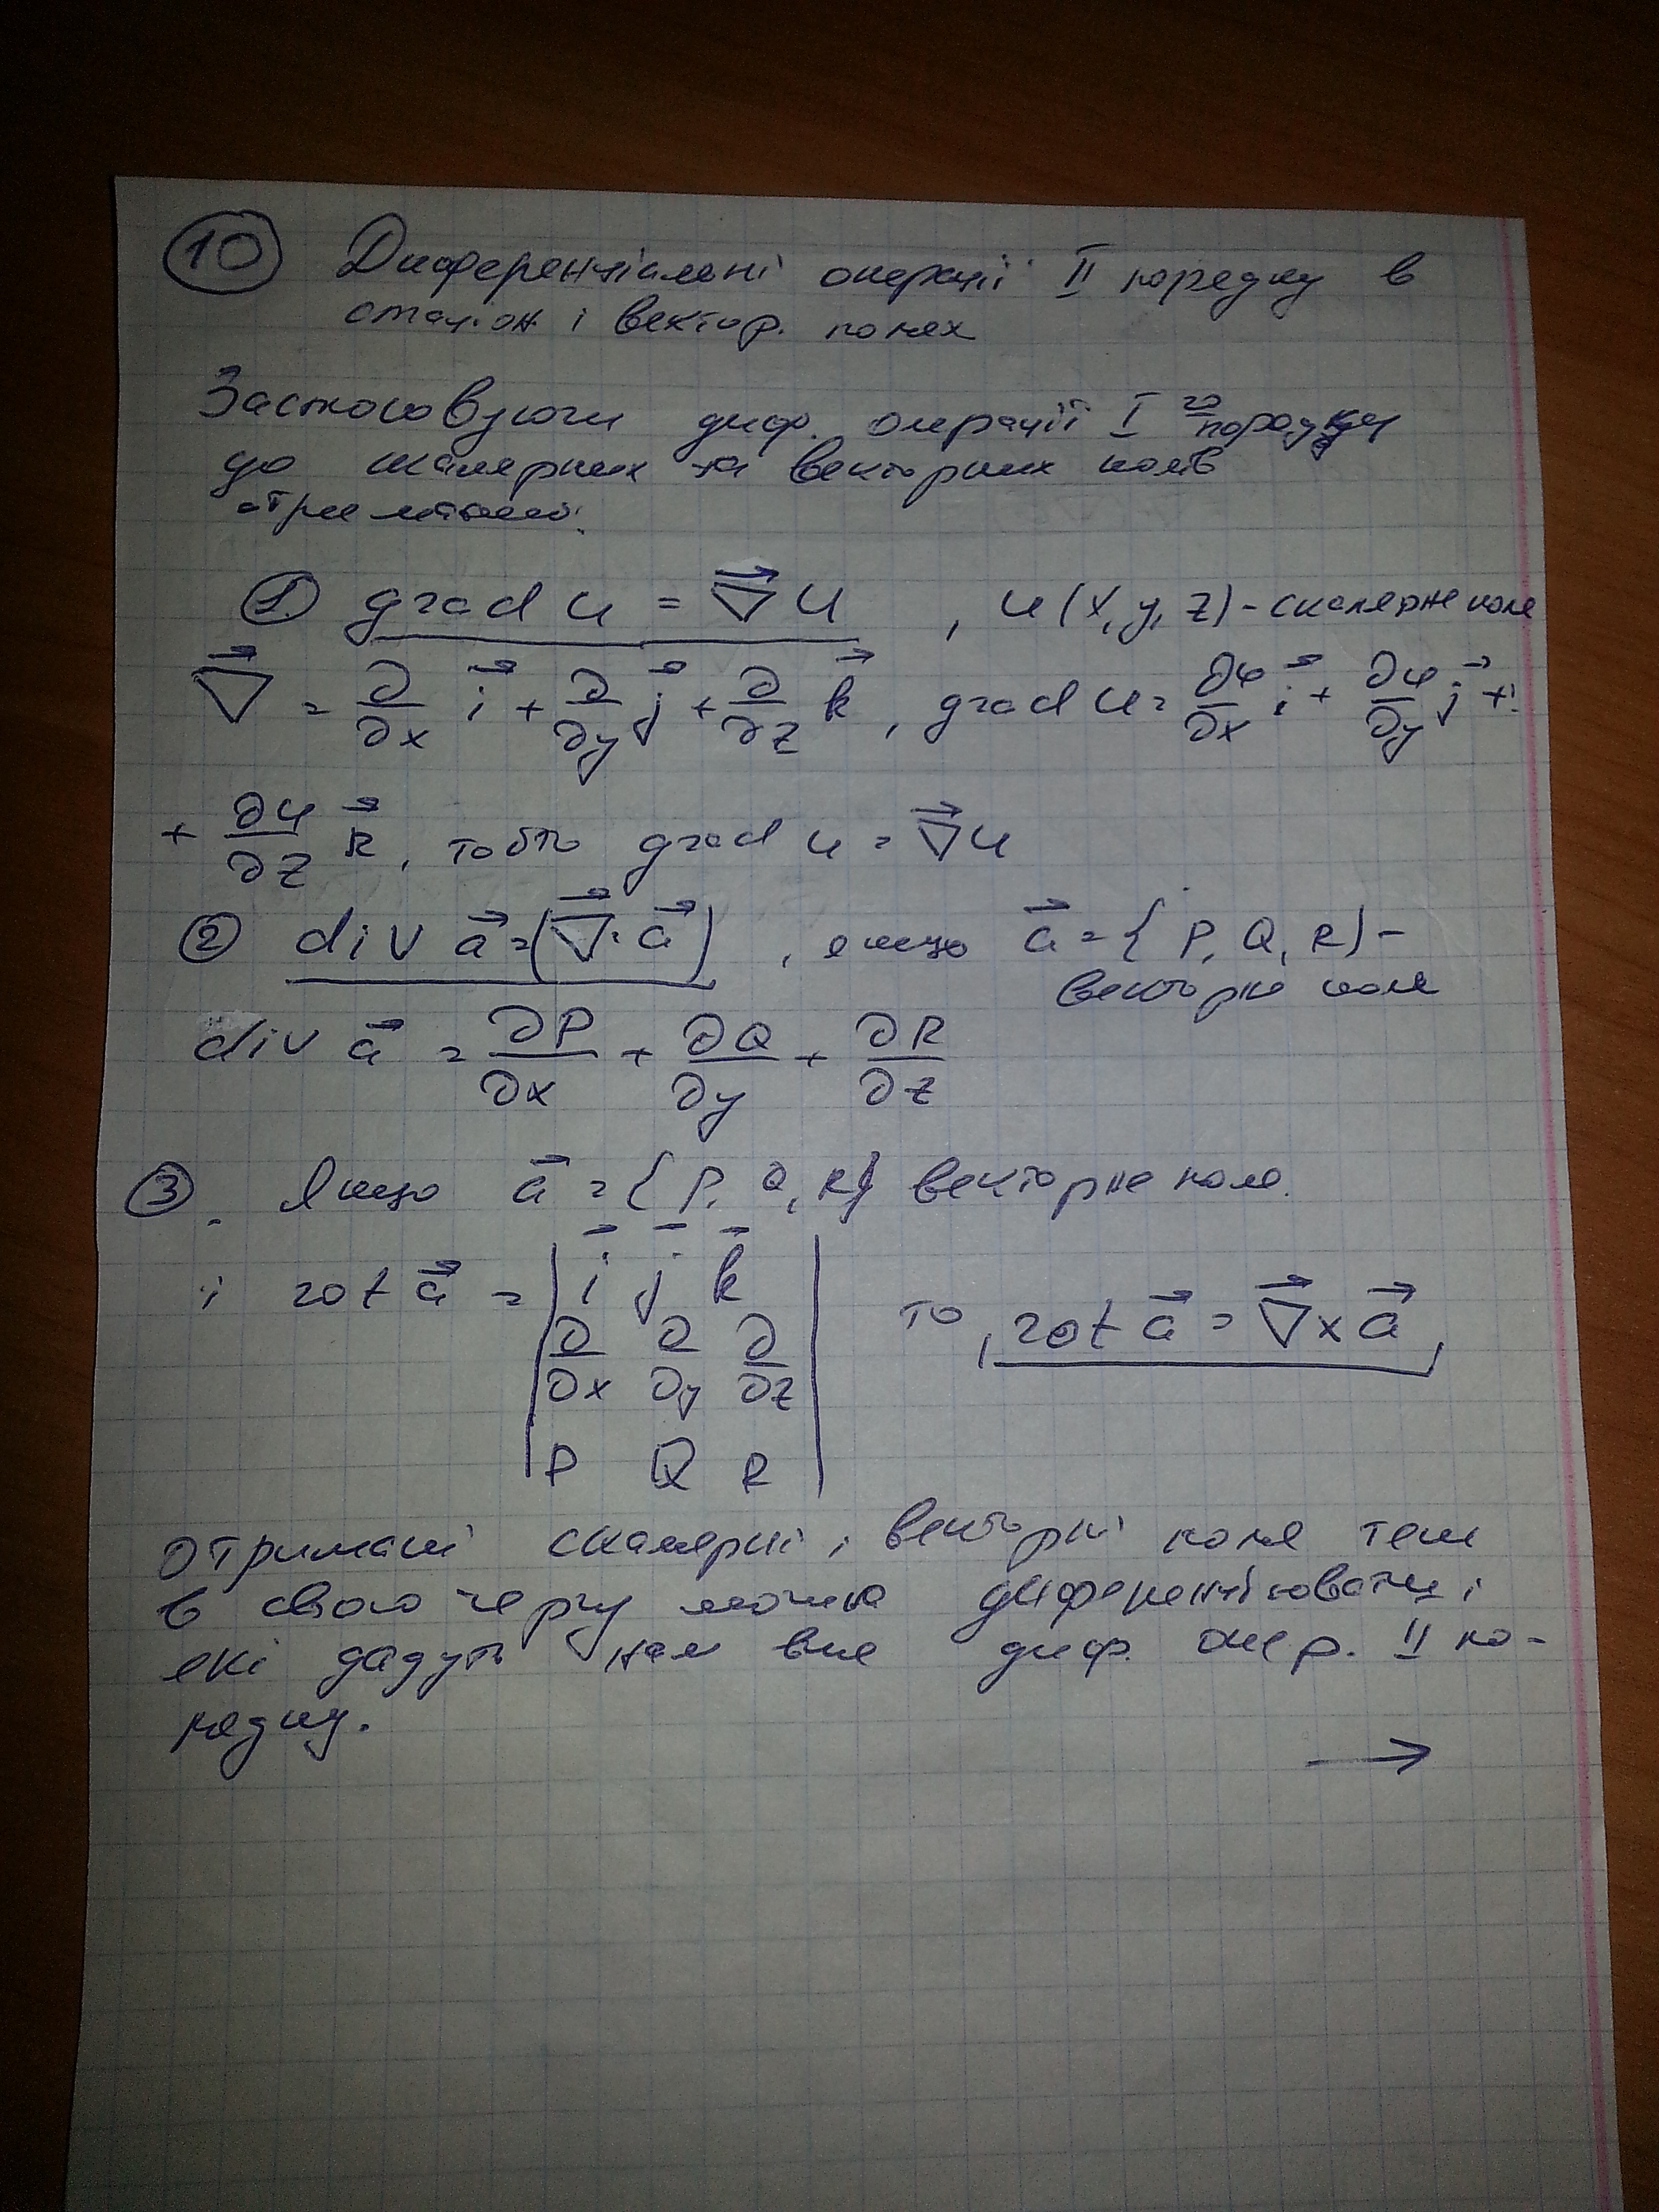 10 Диференціальні операції II порядку в
і вектор. полях
Застосовуючи диф. операції I го порядку
до скалярних та векторних полів
отримаємо:
1. grad u = ∇⃗ u , u (x, y, z) - скалярне поле
∇⃗ = ∂/∂x i⃗ + ∂/∂y j⃗ + ∂/∂z k⃗ , grad u = ∂u/∂x i⃗ + ∂u/∂y j⃗ +
+ ∂u/∂z k⃗ , тобто grad u = ∇⃗ u
2 div a⃗ = (∇⃗ · a⃗) , якщо a⃗ = { P, Q, R } -
векторне поле
div a⃗ = ∂P/∂x + ∂Q/∂y + ∂R/∂z
3. Якщо a⃗ = { P, Q, R } векторне поле.
і rot a⃗ = | i⃗ j⃗ k⃗ |
| ∂/∂x ∂/∂y ∂/∂z | то rot a⃗ = ∇⃗ x a⃗
| P Q R |
Отримані скалярні і векторні поля теж
в свою чергу можна диференціювати,
які дадуть нам вже диф. опер. II по-
рядку.
→